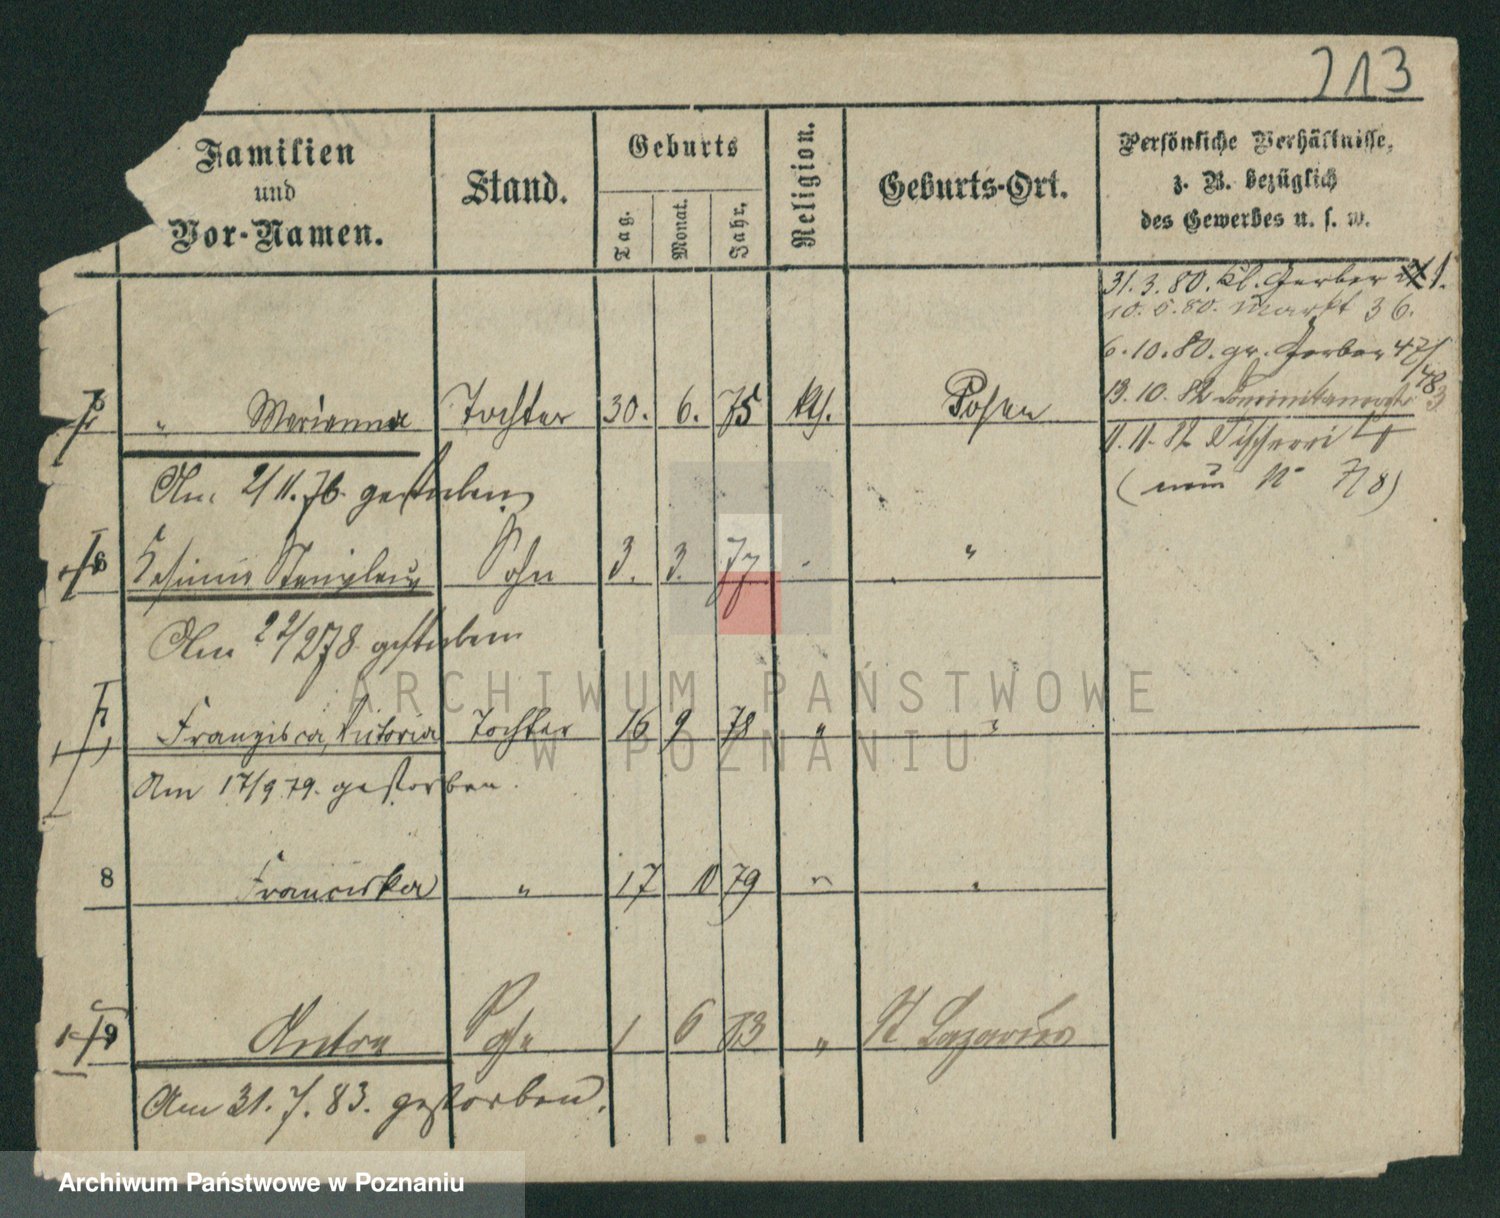 713
Familien
und
Vor-Namen.
Stand.
Geburts
Tag.
Monat.
Jahr.
Religion.
Geburts-Ort.
Persönliche Verhältnisse,
z. B. bezüglich
des Gewerbes u. s. w.
31.3.80. Kl. Gerber 1.
10.5.80. Markt 36.
6.10.80. gr. Gerber 47/48
13.10.82
11.11.82 Fischerei 4
( 7/8)
" Marianna Tochter 30. 6. 75 kth. Posen
Am 2/11.76 gestorben
Sohn 3. 3. 77 "
Am 22/2 78 gestorben
Franziska, Victoria Tochter 16 9 78 " "
Am 17/9 79. gestorben.
8 Franciska " 17 10 79 " "
9 Sohn 1 6 83 " St Lazarus
Am 31.7.83. gestorben.
ARCHIWUM PAŃSTWOWE
W POZNANIU
Archiwum Państwowe w Poznaniu